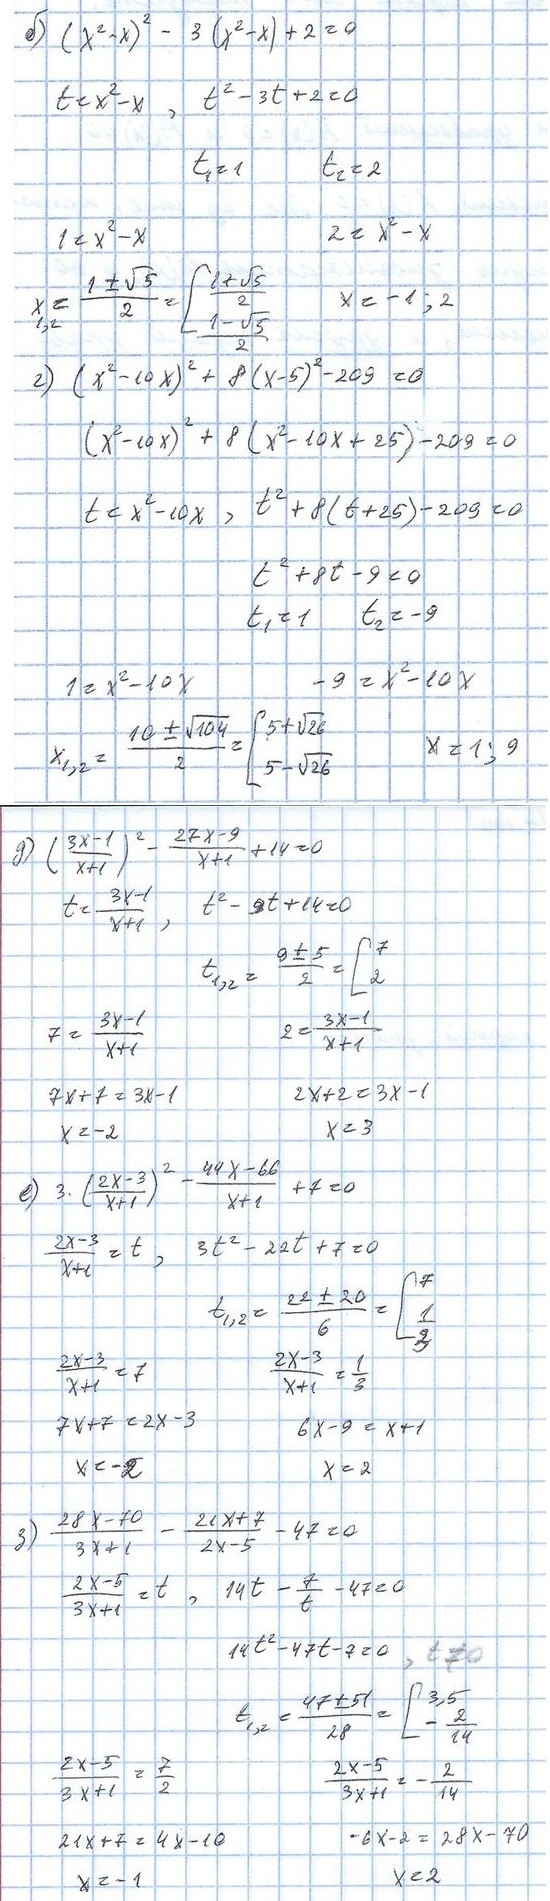 б) (x²-x)² - 3(x²-x)+2=0
t=x²-x, t²-3t+2=0
t₁=1 t₂=2
1=x²-x 2=x²-x
x₁,₂=(1±√5)/2=[(1+√5)/2 x=-1;2
(1-√5)/2
г) (x²-10x)²+8(x-5)²-209=0
(x²-10x)²+8(x²-10x+25)-209=0
t=x²-10x, t²+8(t+25)-209=0
t²+8t-9=0
t₁=1 t₂=-9
1=x²-10x -9=x²-10x
x₁,₂=(10±√104)/2=[5+√26 x=1;9
5-√26
д) ((3x-1)/(x+1))²-(27x-9)/(x+1)+14=0
t=(3x-1)/(x+1), t²-9t+14=0
t₁,₂=(9±5)/2=[7
2
7=(3x-1)/(x+1) 2=(3x-1)/(x+1)
7x+7=3x-1 2x+2=3x-1
x=-2 x=3
е) 3·((2x-3)/(x+1))²-(44x-66)/(x+1)+7=0
(2x-3)/(x+1)=t, 3t²-22t+7=0
t₁,₂=(22±20)/6=[7
1/3
(2x-3)/(x+1)=7 (2x-3)/(x+1)=1/3
7x+7=2x-3 6x-9=x+1
x=-2 x=2
з) (28x-70)/(3x+1)-(21x+7)/(2x-5)-47=0
(2x-5)/(3x+1)=t, 14t-7/t-47=0
14t²-47t-7=0, t≠0
t₁,₂=(47±51)/28=[3,5
-2/14
(2x-5)/(3x+1)=7/2 (2x-5)/(3x+1)=-2/14
21x+7=4x-10 -6x-2=28x-70
x=-1 x=2